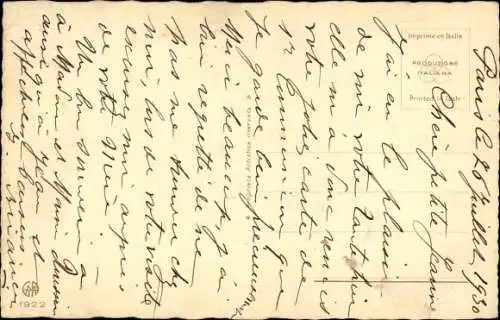 Paris le 26 Juillet 1930
Chère petite Jeanne
J'ai eu le plaisir
de voir votre
elle m'a donc remis
votre jolie carte de
1re Communion que
je garde bien précieusement
Merci beaucoup, j'ai
bien regretté de ne
pas me trouver chez
moi, lors de votre visite
excusez moi auprès
de votre Mère
Un bon souvenir a
à Madame et Marie
ainsi qu'à vous et
affectueux baisers
Imprimé en Italie
PRODUZIONE
ITALIANA
Printed in Italy
1922